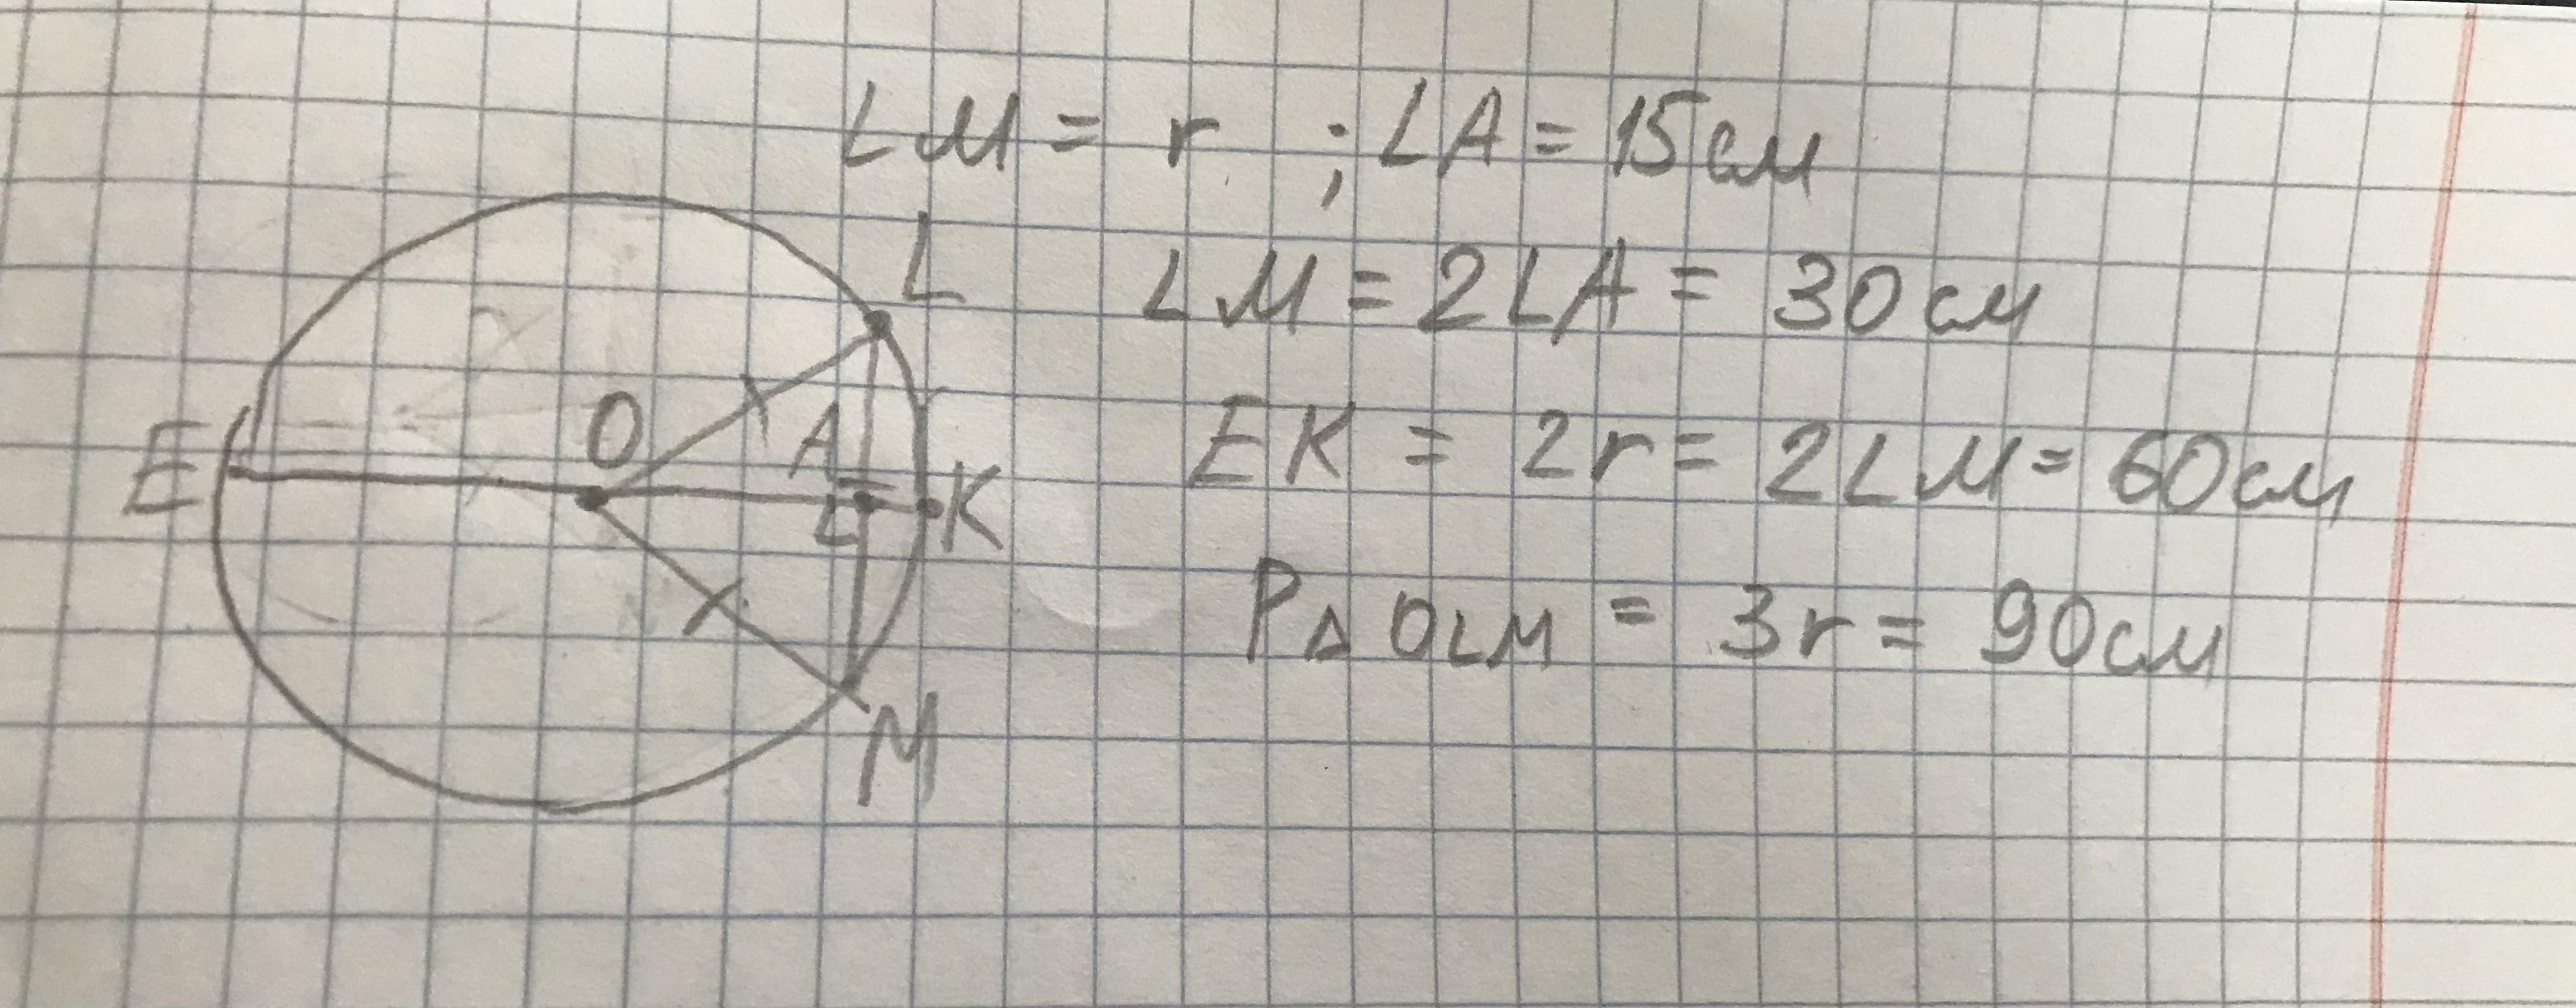 LM = r ; LA = 15см
L
LM = 2LA = 30 см
O
A
E
K
EK = 2r = 2LM = 60см
P△OLM = 3r = 90см
M